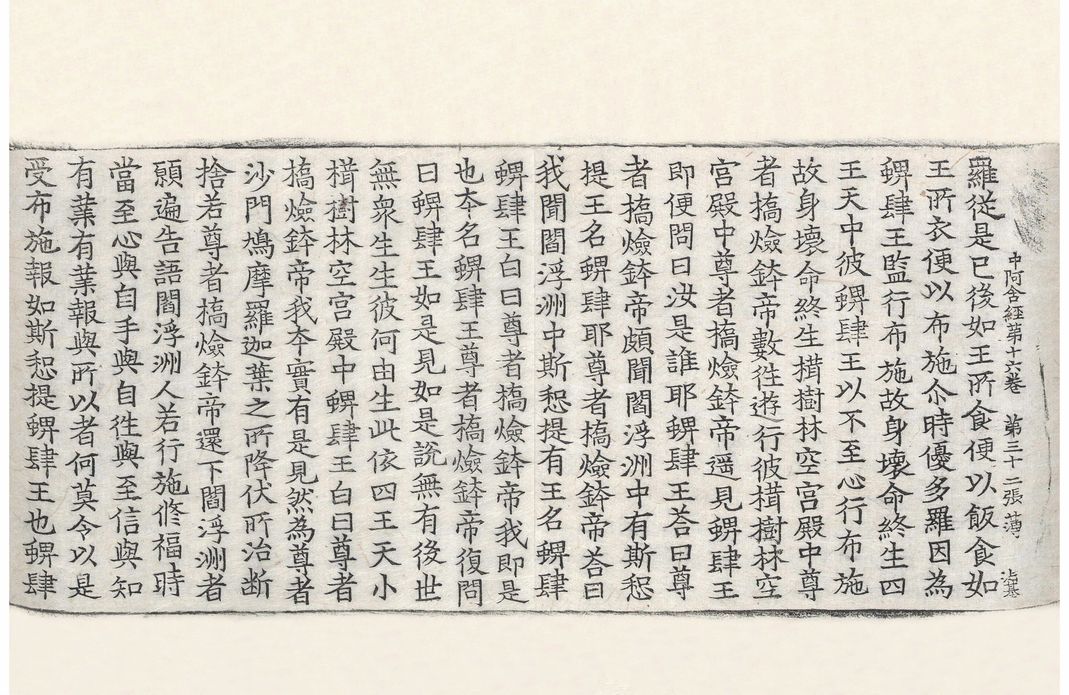 中阿含經苐十六卷 苐三十二張 薄
羅從是已後如王所食便以飯食如
王所衣便以布施尒時優多羅因為
蜱肆王監行布施故身壞命終生四
王天中彼蜱肆王以不至心行布施
故身壞命終生榵樹林空宮殿中尊
者橋㷿鉢帝數往遊行彼榵樹林空
宮殿中尊者橋㷿鉢帝遥見蜱肆王
即便問曰汝是誰耶蜱肆王荅曰尊
者橋㷿鉢帝頗聞閻浮洲中有斯惒
提王名蜱肆耶尊者橋㷿鉢帝荅曰
我聞閻浮洲中斯惒提有王名蜱肆
蜱肆王白曰尊者橋㷿鉢帝我即是
也夲名蜱肆王尊者橋㷿鉢帝復問
曰蜱肆王如是見如是說無有後世
無衆生生彼何由生此依四王天小
榵樹林空宮殿中蜱肆王白曰尊者
橋㷿鉢帝我夲實有是見然為尊者
沙門鳩摩羅迦葉之所降伏所治断
捨若尊者橋㷿鉢帝還下閻浮洲者
願遍告語閻浮洲人若行施修福時
當至心與自手與自往與至信與知
有業有業報與所以者何莫令以是
受布施報如斯惒提蜱肆王也蜱肆